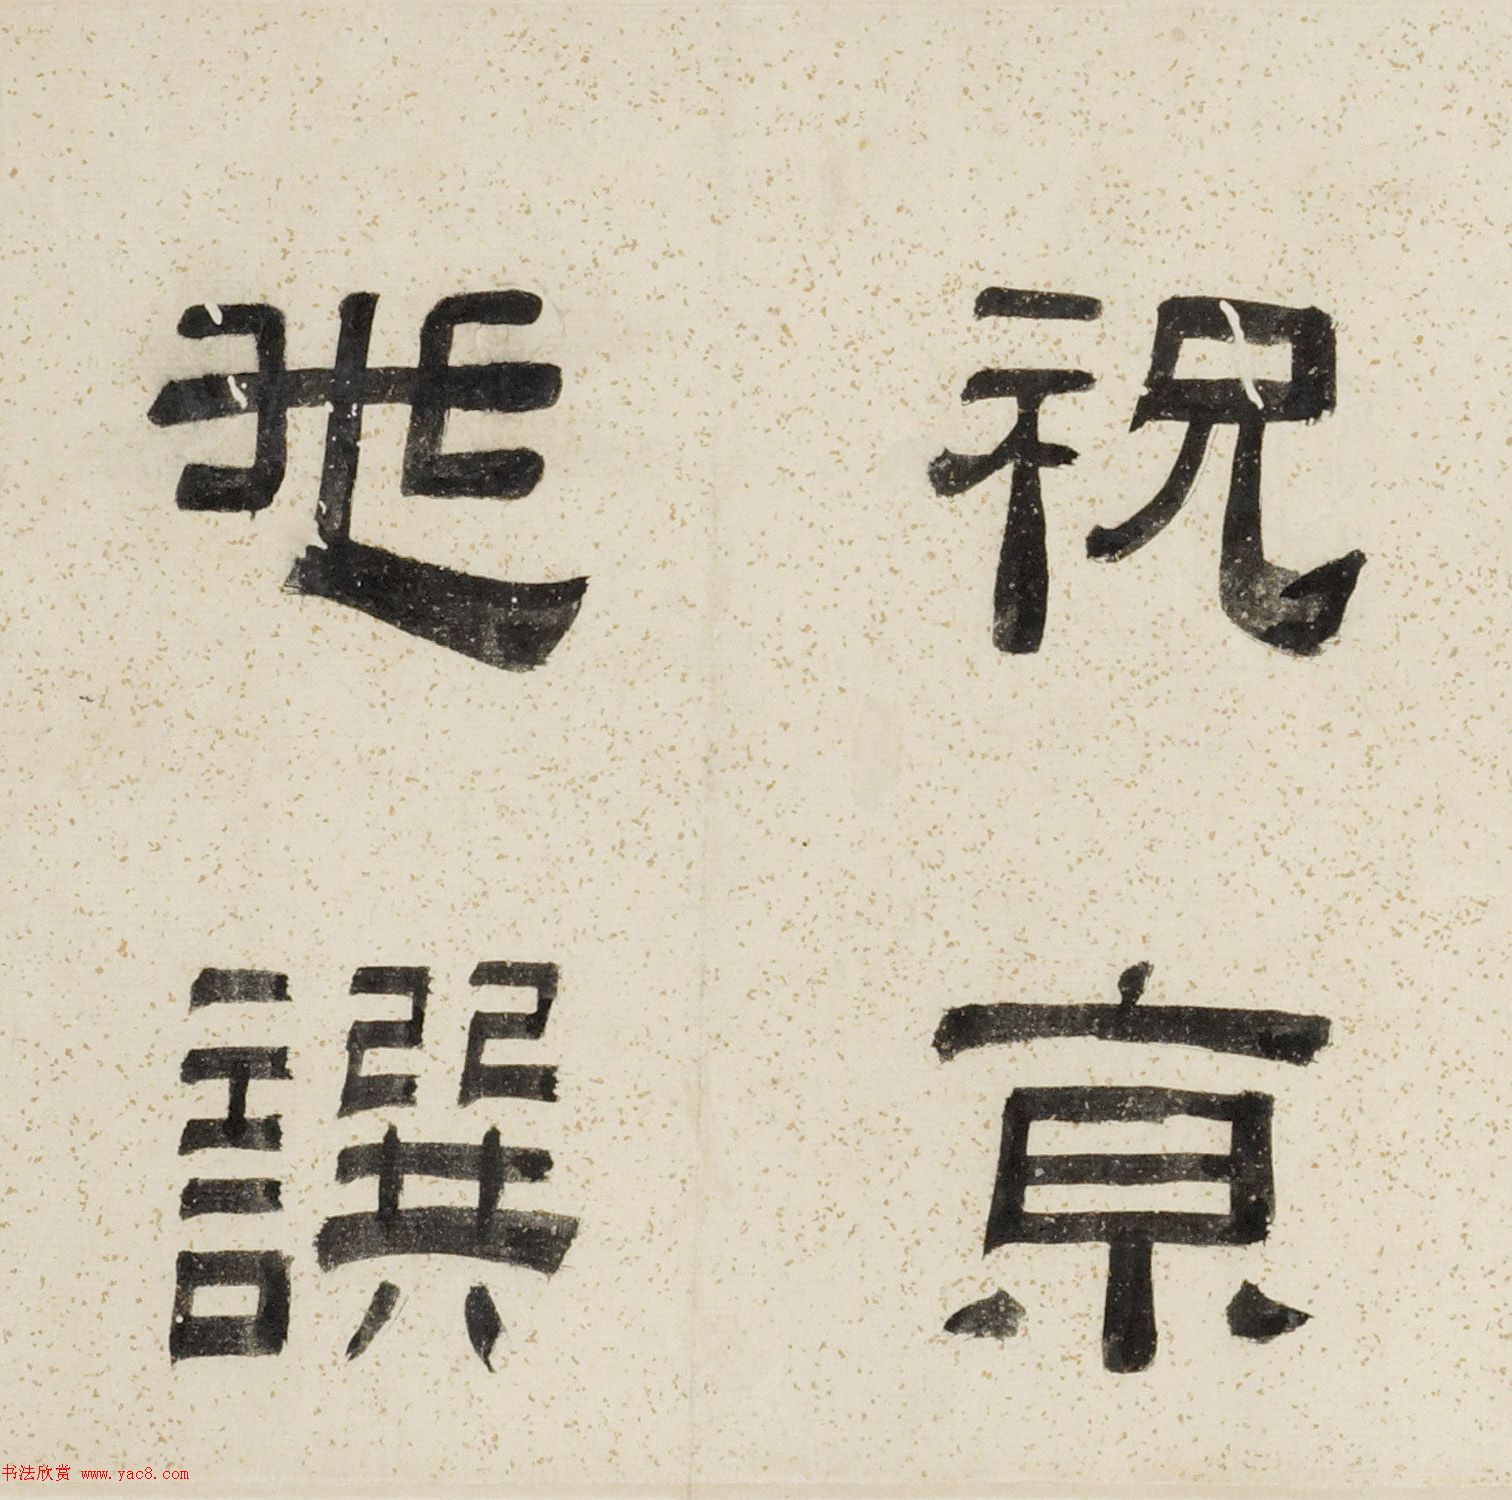 祝京
兆譔
书法欣赏 www.yac8.com